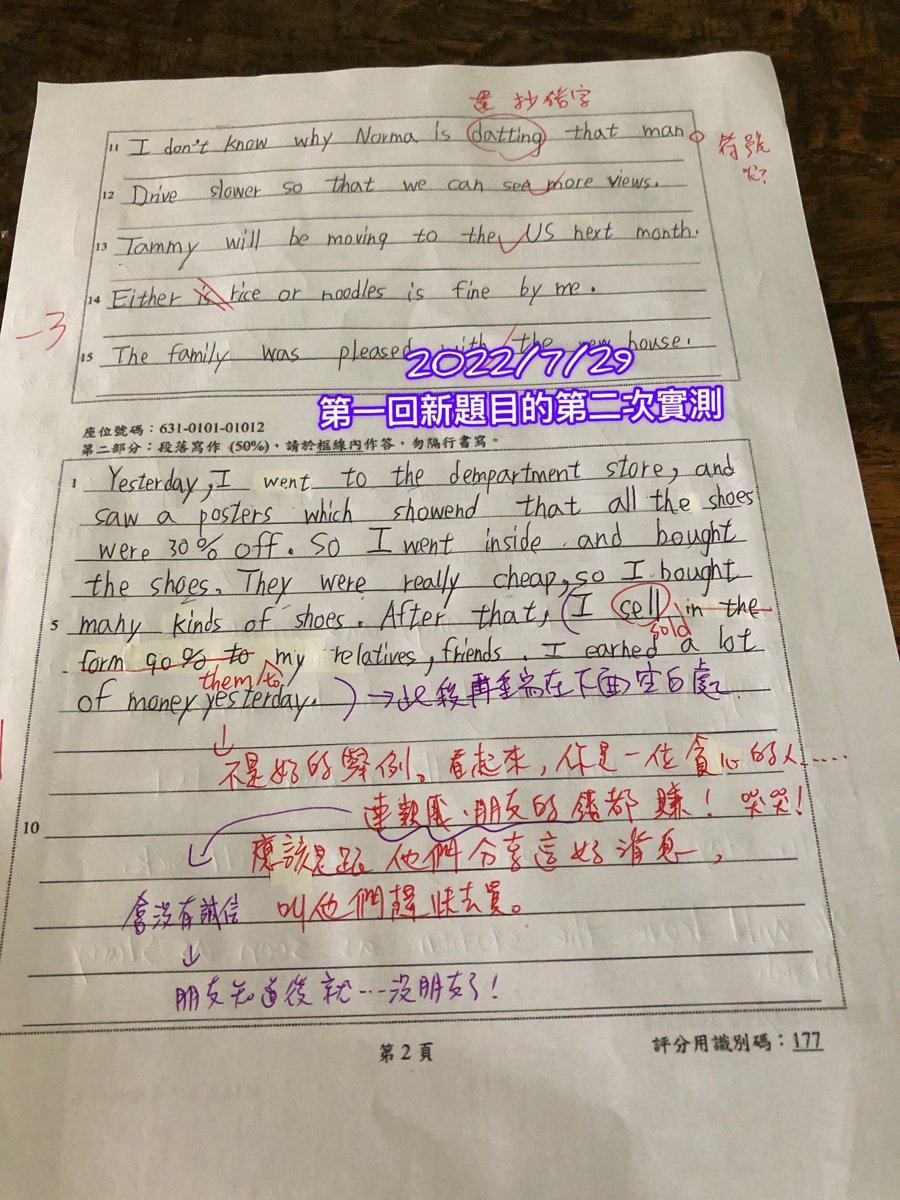 還 抄錯字
11 I don't know why Norma is datting that man 符號
呢?
12 Drive slower so that we can see more views.
13 Tammy will be moving to the US next month.
14 Either is rice or noodles is fine by me.
-3
15 The family was pleased with the new house.
2022/7/29
第一回新題目的第二次實測
座位號碼:631-0101-01012
第二部分:段落寫作 (50%),請於框線內作答,勿隔行書寫。
1 Yesterday, I went to the dempartment store, and
saw a posters which showend that all the shoes
were 30% off. So I went inside and bought
the shoes. They were really cheap, so I bought
5 many kinds of shoes. After that, (I sell in the
sold
form 90% to my relatives, friends. I earned a lot
them to
of money yesterday. ) →此段再重寫在下面空白處.
↓
不是好的舉例。看起來,你是一位貪心的人.....
10 連親戚、朋友的錢都賺!哭哭!
應該是跟他們分享這好消息,
會沒有誠信 叫他們趕快去買。
↓
朋友知道後就…沒朋友了!
第 2 頁
評分用識別碼:177